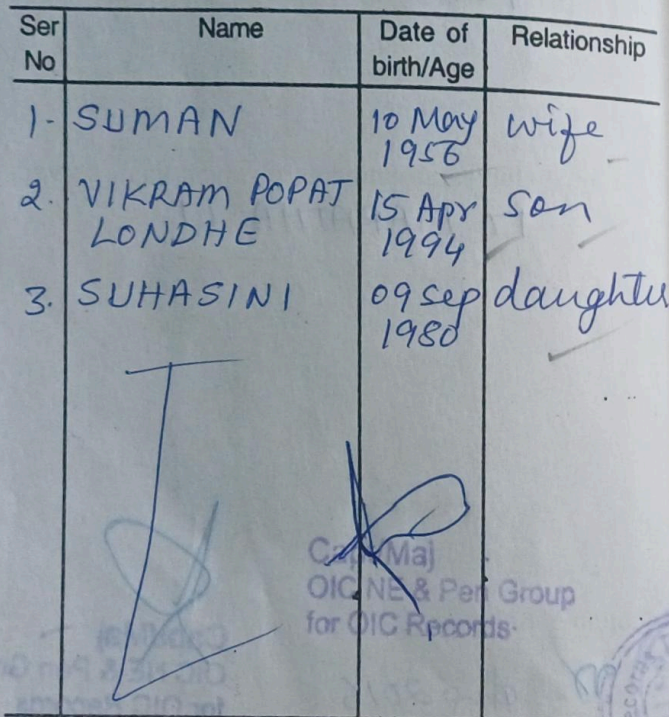 Ser No Name Date of birth/Age Relationship
1- SUMAN 10 May 1956 wife
2. VIKRAM POPAT LONDHE 15 Apr 1994 son
3. SUHASINI 09 Sep 1980 daughter
Capt/Maj
OIC NE & Pen Group
for OIC Records